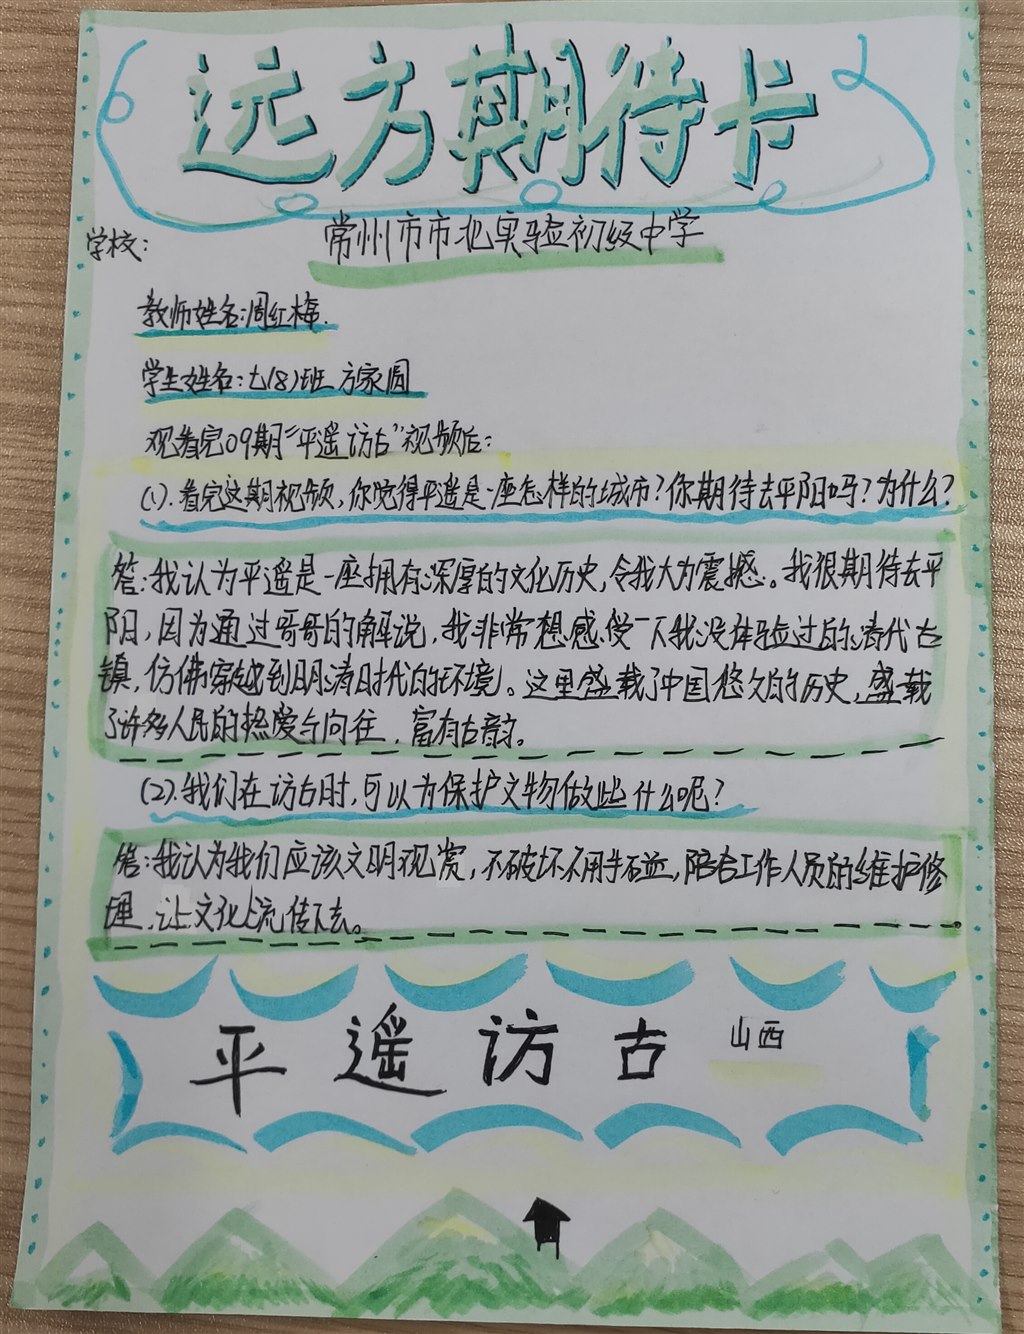 远方期待卡
学校: 常州市市北实验初级中学
教师姓名:周红梅.
学生姓名:七(8)班 方家圆
观看完09期“平遥访古”视频后:
(1).看完这期视频,你觉得平遥是一座怎样的城市?你期待去平阳吗?为什么?
答:我认为平遥是一座拥有深厚的文化历史,令我大为震撼。我很期待去平
阳,因为通过哥哥的解说,我非常想感受一下我没体验过的清代古
镇,仿佛穿越到明清时代的环境。这里盛载了中国悠久的历史,盛载
了许多人民的热爱与向往,富有古韵。
(2).我们在访古时,可以为保护文物做些什么呢?
答:我认为我们应该文明观赏,不破坏不用手触碰,陪合工作人员的维护修
理,让文化流传下去。
平遥访古 山西